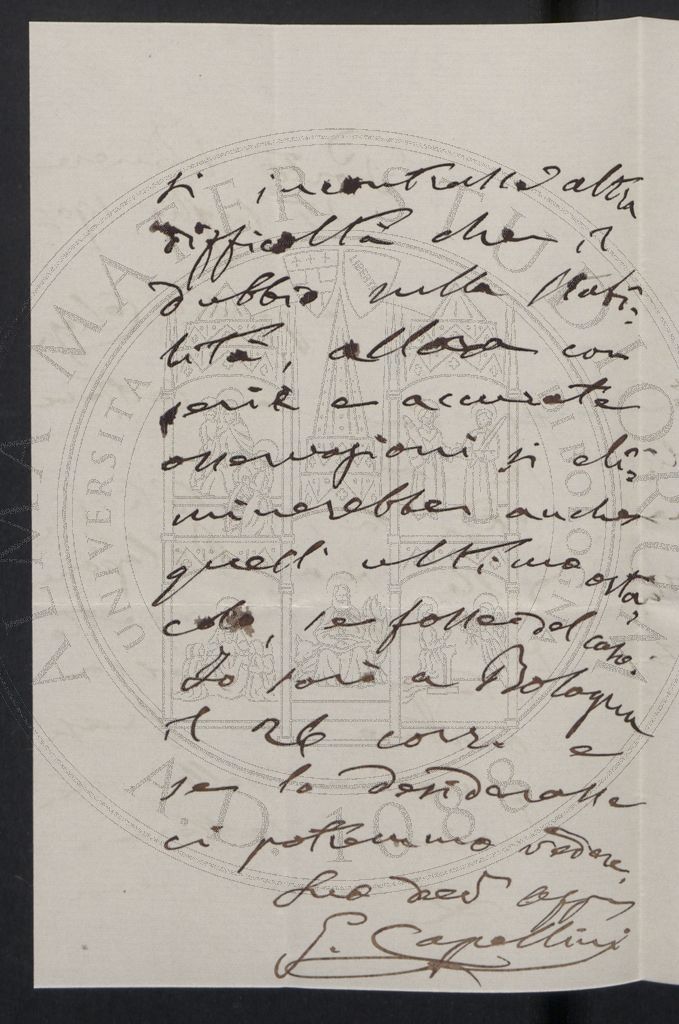 si incontrasse altra
difficoltà che il
dubbio sulla stabi-
lità, allora con
serie e accurate
osservazioni si eli-
minerebbe anche
quell'ultimo osta-
colo, se fosse del caso.
Io sarò a Bologna
il 26 corr. e
se lo desiderasse
ci potremmo vedere.
Suo
G. Capellini
ALMA MATER STUDIORUM
UNIVERSITÀ DI BOLOGNA
A.D. 1088